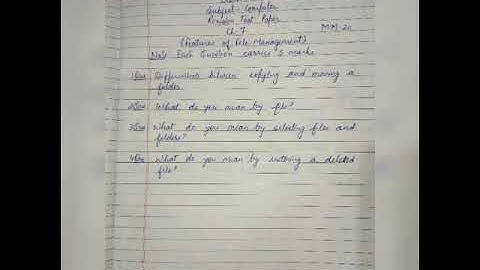 Subject- Computer
Revision Test Paper
Ch-7 M.M-20
(Features of File Management)
Note Each Question carries 5 marks
1Que Differentiate between copying and moving a
folder.
2Que What do you mean by file?
3Que What do you mean by selecting files and
folders?
4Que What do you mean by restoring a deleted
file?